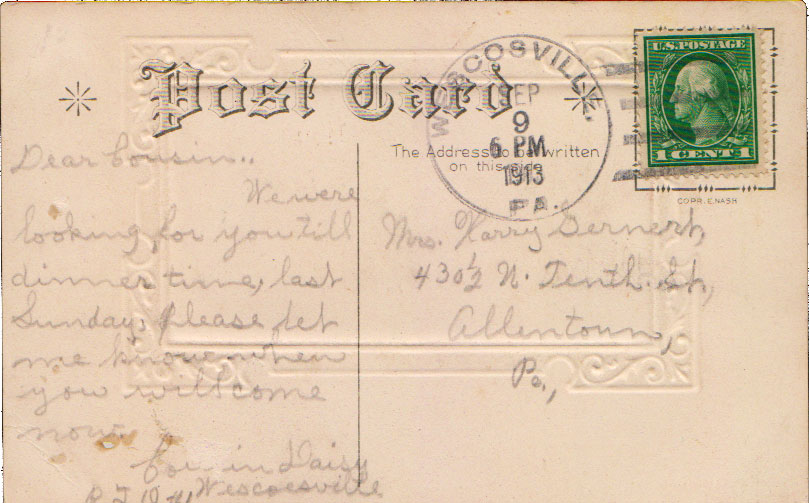 Post Card
The Address to be written
on this side
WESCOSVILLE.
SEP
9
6 PM
1913
PA.
U.S. POSTAGE
1 CENT 1
COPR. E. NASH
Dear Cousin..
We were
looking for you till
dinner time, last
Sunday, Please let
me know when
you will come
now.
Cousin Daisy
R.F.D. #1 Wescoesville
Mrs. Harry Gernert,
430½ N. Tenth. St,
Allentown,
Pa.,